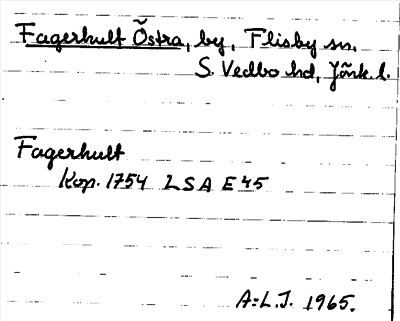 Fagerhult Östra, by, Flisby sn.
S. Vedbo hd, Jönk. l.
Fagerhult
Kop. 1754 LSA E45
A:L.J. 1965.